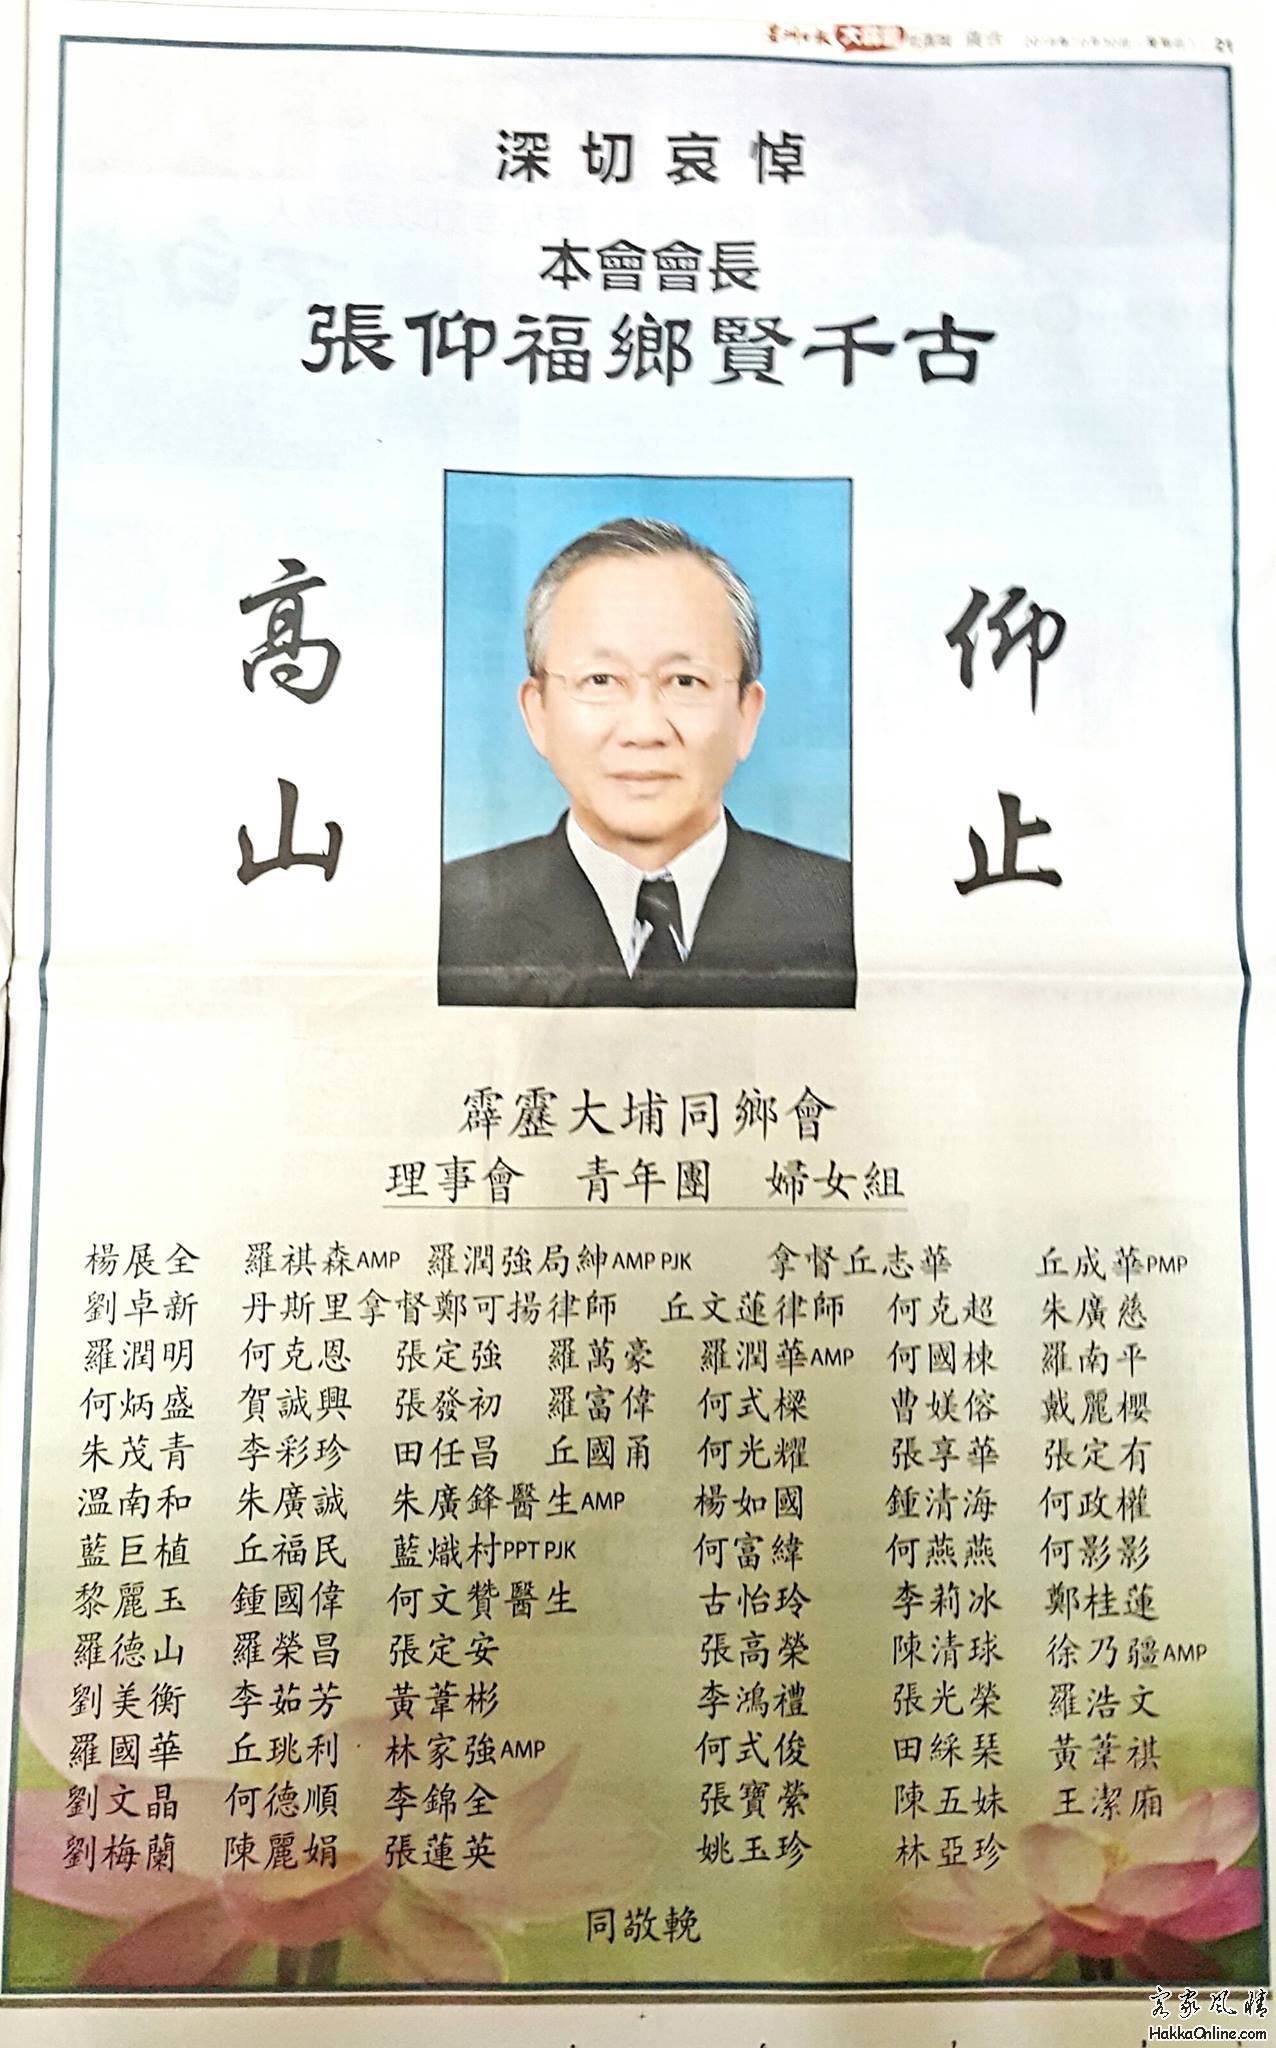 星洲日報 大霹靂 廣告 21
深切哀悼
本會會長
張仰福鄉賢千古
高山
仰止
霹靂大埔同鄉會
理事會 青年團 婦女組
楊展全 羅祺森AMP 羅潤強局紳AMP PJK 拿督丘志華 丘成華PMP
劉卓新 丹斯里拿督鄭可揚律師 丘文蓮律師 何克超 朱廣慈
羅潤明 何克恩 張定強 羅萬豪 羅潤華AMP 何國棟 羅南平
何炳盛 賀誠興 張發初 羅富偉 何式樑 曹媄傛 戴麗櫻
朱茂青 李彩珍 田任昌 丘國甬 何光耀 張享華 張定有
溫南和 朱廣誠 朱廣鋒醫生AMP 楊如國 鍾清海 何政權
藍巨植 丘福民 藍熾村PPT PJK 何富緯 何燕燕 何影影
黎麗玉 鍾國偉 何文贊醫生 古怡玲 李莉冰 鄭桂蓮
羅德山 羅榮昌 張定安 張高榮 陳清球 徐乃疆AMP
劉美衡 李茹芳 黃葦彬 李鴻禮 張光榮 羅浩文
羅國華 丘珧利 林家強AMP 何式俊 田綵琹 黃葦祺
劉文晶 何德順 李錦全 張寶縈 陳五妹 王潔廂
劉梅蘭 陳麗娟 張蓮英 姚玉珍 林亞珍
同敬輓
客家風情
HakkaOnline.com